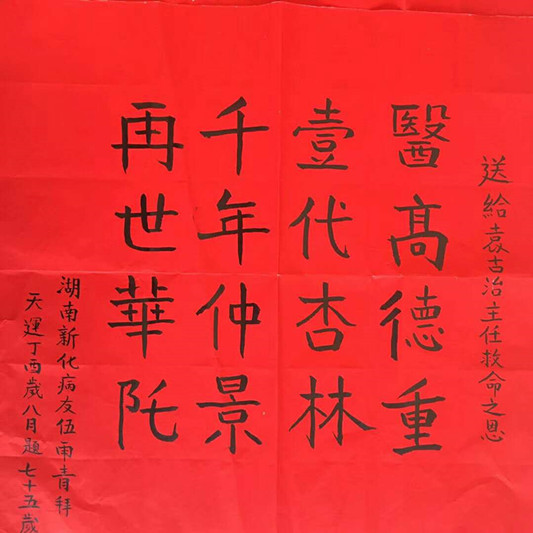 送給袁吉治主任救命之恩
醫高德重
壹代杏林
千年仲景
再世華阤
湖南新化病友伍雨青拜
天運丁酉歲八月題七十五歲